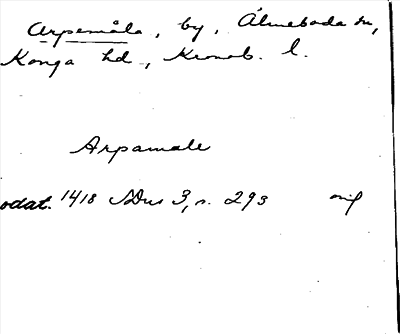 Arpemåla, by, Älmeboda sn,
Konga hd., Kronob. l.
Arpamale
odat. 1418 SDns 3, s. 293 orig